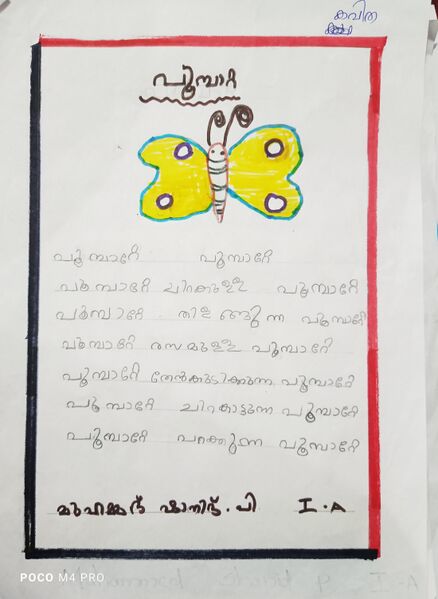 കവിത
പൂമ്പാറ്റ
പൂമ്പാറ്റേ പൂമ്പാറ്റേ
പൂമ്പാറ്റേ ചിറകുള്ള പൂമ്പാറ്റേ
പൂമ്പാറ്റേ തിളങ്ങുന്ന പൂമ്പാറ്റേ
പൂമ്പാറ്റേ രസമുള്ള പൂമ്പാറ്റേ
പൂമ്പാറ്റേ തേൻകുടിക്കുന്ന പൂമ്പാറ്റേ
പൂമ്പാറ്റേ ചിറകാട്ടുന്ന പൂമ്പാറ്റേ
പൂമ്പാറ്റേ പറക്കുന്ന പൂമ്പാറ്റേ
മുഹമ്മദ് ഷാനിദ്.പി I.A
POCO M4 PRO